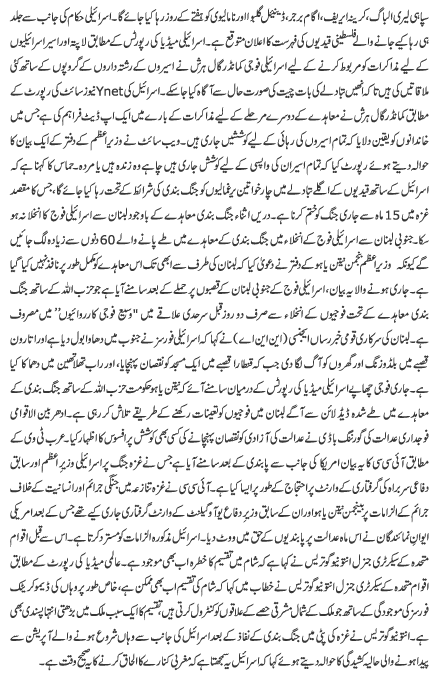 سپاہی لیری الباگ، کرینا اریف، اگام برجر، ڈینیئل گلبوا اور ناما لیوی کو ہفتے کے روز رہا کیا جائے گا۔ اسرائیلی حکام کی جانب سے جلد
ہی رہا کیے جانے والے فلسطینی قیدیوں کی فہرست کا اعلان متوقع ہے۔ اسرائیلی میڈیا کی رپورٹس کے مطابق لاپتا اور اسیر اسرائیلیوں
کے لیے مذاکرات کو مربوط کرنے کے لیے اسرائیلی فوجی کمانڈر گال ہرش نے اسیروں کے رشتہ داروں کے گروپوں کے ساتھ کئی
ملاقاتیں کی ہیں تاکہ انھیں تبادلے کی بات چیت کی صورت حال سے آگاہ کیا جا سکے۔ اسرائیل کی Ynet نیوز سائٹ کی رپورٹ کے
مطابق کمانڈر گال ہرش نے معاہدے کے دوسرے مرحلے کے لیے مذاکرات کے بارے میں ایک اپ ڈیٹ فراہم کی ہے جس میں
خاندانوں کو یقین دلایا کہ تمام اسیروں کی رہائی کے لیے کوششیں جاری ہیں۔ ویب سائٹ نے وزیراعظم کے دفتر کے ایک بیان کا
حوالہ دیتے ہوئے رپورٹ کیا کہ تمام اسیران کی واپسی کے لیے کوشش جاری ہیں چاہے وہ زندہ ہیں یا مردہ۔ حماس کا کہنا ہے کہ
اسرائیل کے ساتھ قیدیوں کے اگلے تبادلے میں چار خواتین یرغمالیوں کو جنگ بندی کی شرائط کے تحت رہا کیا جائے گا، جس کا مقصد
غزہ میں 15 ماہ سے جاری جنگ کو ختم کرنا ہے۔ دریں اثناء جنگ بندی معاہدے کے باوجود لبنان سے اسرائیلی فوج کا انخلا نہ ہو
سکا۔ جنوبی لبنان سے اسرائیلی فوج کے انخلاء میں جنگ بندی کے معاہدے میں طے پانے والے 60 دنوں سے زیادہ لگ جائیں
گے کیونکہ وزیراعظم بنجمن نیتن یاہو کے دفتر نے دعویٰ کیا کہ لبنان کی طرف سے ابھی تک اس معاہدے کو مکمل طور پر نافذ نہیں کیا گیا
ہے۔ جاری ہونے والا یہ بیان، اسرائیلی فوج کے جنوبی لبنان کے قصبوں پر حملے کے بعد سامنے آیا ہے جو حزب اللہ کے ساتھ جنگ
بندی معاہدے کے تحت فوجیوں کے انخلاء سے صرف دو روز قبل سرحدی علاقے میں "وسیع فوجی کارروائیوں" میں مصروف
ہے۔ لبنان کی سرکاری قومی خبر رساں ایجنسی (این این اے) نے کہا کہ اسرائیلی فورسز نے جنوب میں دھاوا بول دیا ہے اور تارون
میں بلڈوزنگ اور گھروں کو آگ لگا دی جب کہ قنطارا قصبے میں ایک مسجد کو نقصان پہنچایا، اور رب تھلاتھین میں دھماکا کیا
ہے۔ جاری فوجی چھاپے اسرائیلی میڈیا کی رپورٹس کے درمیان سامنے آئے کہ نیتن یاہو حکومت حزب اللہ کے ساتھ جنگ بندی کے
معاہدے میں طے شدہ ڈیڈ لائن سے آگے لبنان میں فوجیوں کو تعینات رکھنے کے طریقے تلاش کر رہی ہے۔ ادھر بین الاقوامی
فوجداری عدالت کی گورننگ باڈی نے عدالت کی آزادی کو نقصان پہنچانے کی کسی بھی کوشش پر افسوس کا اظہار کیا۔ عرب ٹی وی کے
مطابق آئی سی سی کا یہ بیان امریکا کی جانب سے پابندی کے بعد سامنے آیا ہے جس نے غزہ جنگ پر اسرائیلی وزیراعظم اور سابق
دفاعی سربراہ کی گرفتاری کے وارنٹ پر احتجاج کے طور پر ایسا کیا ہے۔ آئی سی سی نے غزہ تنازعہ میں جنگی جرائم اور انسانیت کے خلاف
جرائم کے الزامات پر بینجمن نیتن یاہو اور ان کے سابق وزیر دفاع یوآو گیلنٹ کے وارنٹ گرفتاری جاری کیے تھے جس کے بعد امریکی
ایوان نمائندگان نے اس ماہ عدالت پر پابندیوں کے حق میں ووٹ دیا۔ اسرائیل مذکورہ الزامات کو مسترد کرتا ہے۔ اس سے قبل اقوام
متحدہ کے سیکرٹری جنرل انتونیو گوتریس نے کہا ہے کہ شام میں تقسیم کا خطرہ اب بھی موجود ہے۔ عالمی میڈیا کی رپورٹ کے مطابق اقوام
متحدہ کے سیکرٹری جنرل انتونیو گوتریس نے خطاب میں کہا کہ شام کی تقسیم اب بھی ممکن ہے، خاص طور پر وہاں کی ڈیموکریٹک
فورسز کی موجودگی کے ساتھ جو ملک کے شمال مشرقی حصے کے علاقوں کو کنٹرول کرتی ہیں، تقسیم کا ایک سبب ملک میں بڑھتی انتہا پسندی بھی
ہے۔ انتونیو گوتریس نے غزہ کی پٹی میں جنگ بندی کے نفاذ کے بعد اسرائیل کی جانب سے وہاں شروع ہونے والے آپریشن سے
پیدا ہونے والی حالیہ کشیدگی کا حوالہ دیتے ہوئے کہا کہ اسرائیل یہ سمجھتا ہے کہ مغربی کنارے کا الحاق کرنے کا یہ صحیح وقت ہے۔